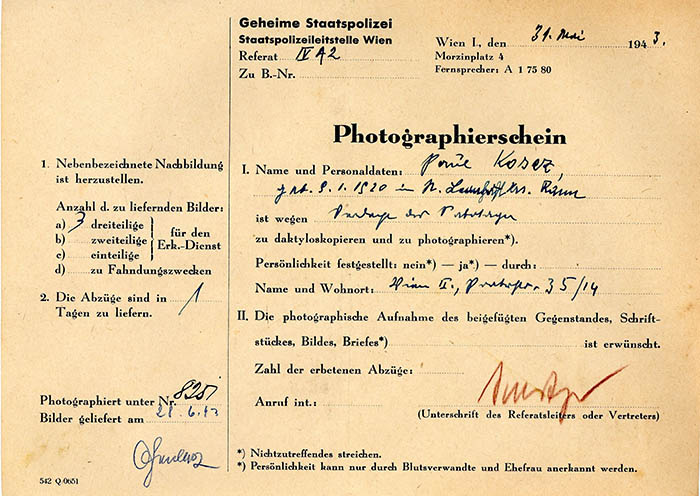 Geheime Staatspolizei
Staatspolizeileitstelle Wien
Referat IV A 2
Zu B.-Nr.
Wien I., den 31. Mai 1943.
Morzinplatz 4
Fernsprecher: A 1 75 80
Photographierschein
1. Nebenbezeichnete Nachbildung
ist herzustellen.
Anzahl d. zu liefernden Bilder:
a) 3 dreiteilige
b) zweiteilige
c) einteilige
für den
Erk.-Dienst
d) zu Fahndungszwecken
2. Die Abzüge sind in 1
Tagen zu liefern.
Photographiert unter Nr. 825
Bilder geliefert am 21.6.43
542 Q/0651
I. Name und Personaldaten:
geb. 9.1.1920 in
ist wegen
zu daktyloskopieren und zu photographieren*).
Persönlichkeit festgestellt: nein*) — ja*) — durch:
Name und Wohnort: Wien II., 35/14
II. Die photographische Aufnahme des beigefügten Gegenstandes, Schrift-
stückes, Bildes, Briefes*) ist erwünscht.
Zahl der erbetenen Abzüge:
Anruf int.:
(Unterschrift des Referatsleiters oder Vertreters)
*) Nichtzutreffendes streichen.
*) Persönlichkeit kann nur durch Blutsverwandte und Ehefrau anerkannt werden.